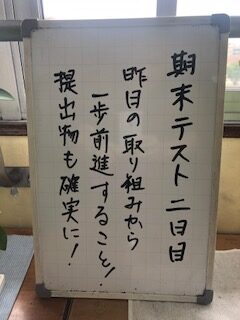 期末テスト二日目
昨日の取り組みから
一歩前進すること!
提出物も確実に!